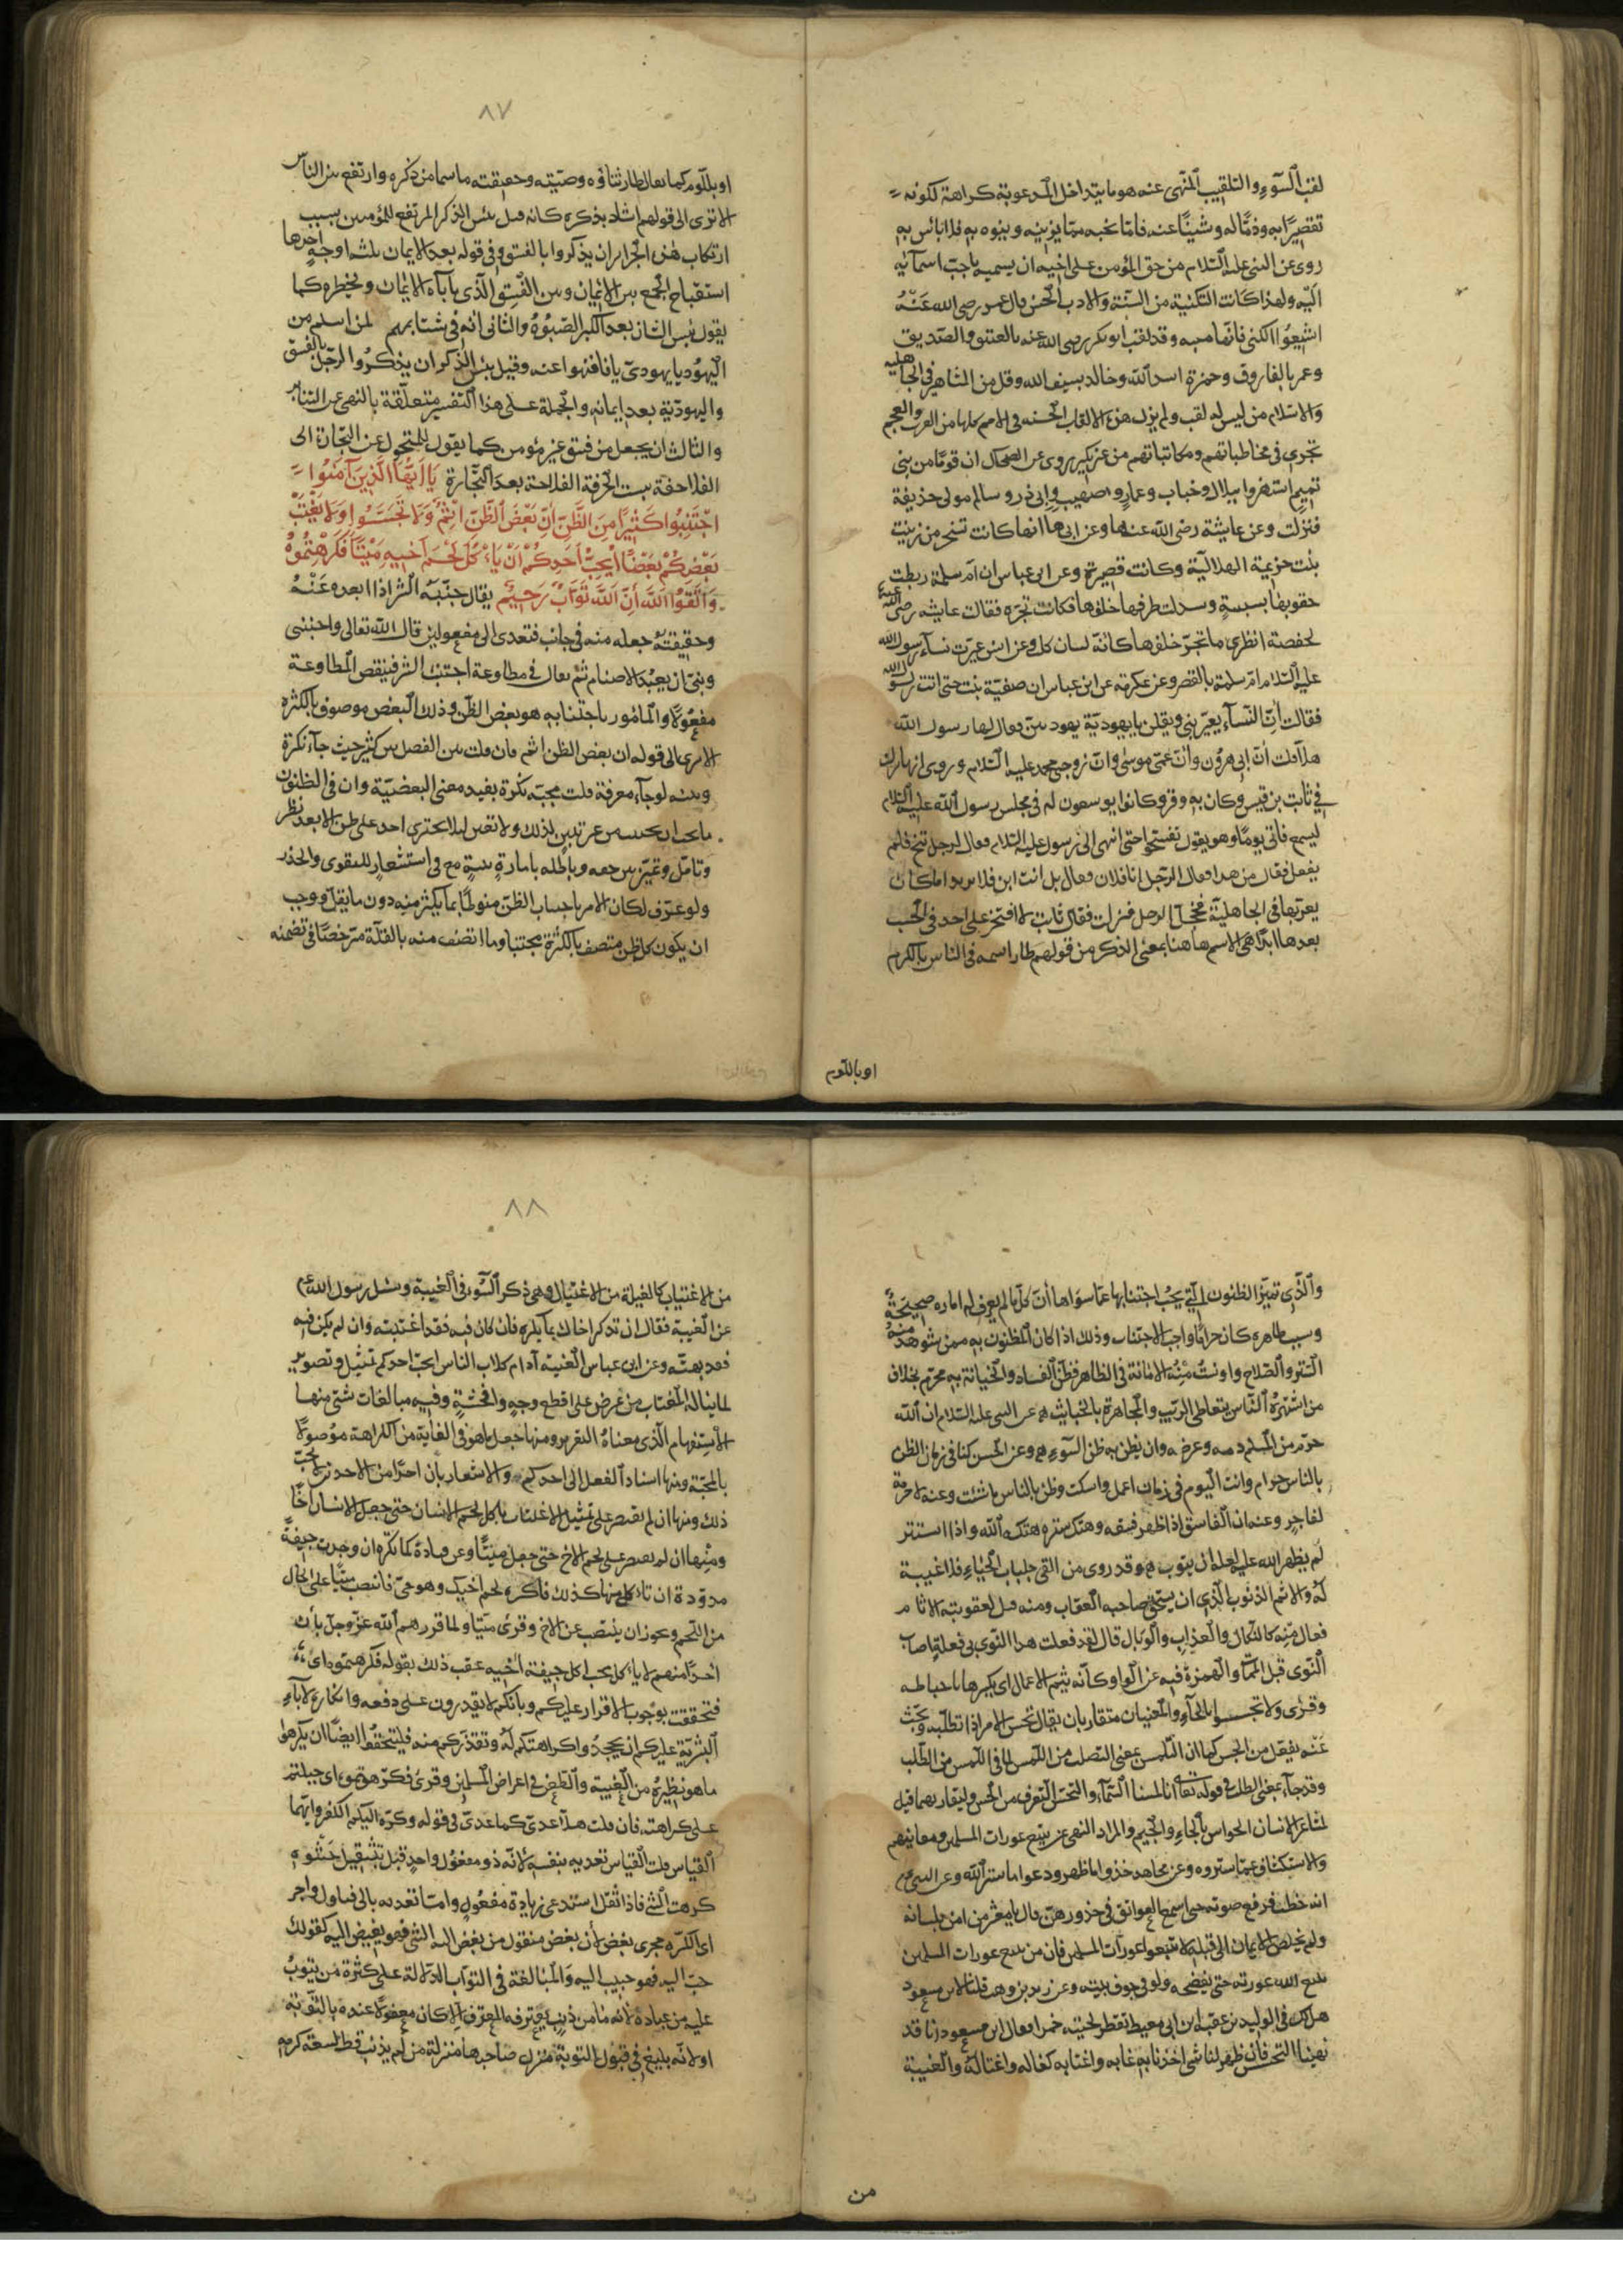 لقب السوء والتلقيب المنهى عنه هو ما يتداخل المدعو به كراهة لكونه
تقصيرا به وذما له وشينا عنه فاما ما يحبه مما يزينه وينوه به فلا باس به
روى عن النبى عليه السلام من حق المؤمن على اخيه ان يسميه باحب اسمائه
اليه ولهذا كانت التكنية من السنة والادب الحسن قال عمر رضى الله عنه
اشيعوا الكنى فانها منبهة وقد لقب ابو بكر رضى الله عنه بالعتيق والصديق
وعمر بالفاروق وحمزة اسد الله وخالد بسيف الله وقل من المشاهير فى الجاهلية
والاسلام من ليس له لقب ولم يزل هذه الالقاب الحسنه فى الامم كلها من العرب والعجم
تجرى فى مخاطباتهم ومكاتباتهم من غير نكير روى عن الضحاك ان قوما من بنى
تميم استهزوا ببلال وخباب وعمار وصهيب وابى ذر وسالم مولى حذيفة
فنزلت وعن عايشة رضى الله عنها وعن ابيها انها كانت تسخر من زينب
بنت خزيمة الهلالية وكانت قصيرة وعن ابن عباس ان ام سلمة ربطت
حقويها بسبنية وسدلت طرفها خلفها فكانت تجره فقالت عايشه رضى الله عنها
لحفصة انظرى ما تجر خلفها كانه لسان كلب وعن انس عيرت نساء رسول الله
عليه السلام ام سلمة بالقصر وعن عكرمه عن ابن عباس ان صفية بنت حيى اتت رسول الله
فقالت ان النساء يعيرننى ويقلن يا يهودية بنت يهوديين فقال لها رسول الله
هلا قلت ان ابى هرون وان عمى موسى وان زوجى محمد عليه السلام وروى انها نزلت
فى ثابت بن قيس وكان به وقر وكانوا يوسعون له فى مجلس رسول الله عليه السلام
ليسمع فاتى يوما وهو يقول تفسحوا حتى انتهى الى رسول عليه السلام فقال لرجل تنح فلم
يفعل فقال من هذا فقال الرجل انا فلان فقال بل انت ابن فلانة يريد اما كان
يعير بها فى الجاهلية فخجل الرجل فنزلت فقال ثابت لا افتخر على احد فى الحسب
بعدها ابدا هى الاسم هاهنا بمعنى الذكر من قولهم طار اسمه فى الناس بالكرم
او باللوم
٨٧
او باللوم كما يقال طار ثناؤه وصيته وحقيقته ما سما من ذكره وارتفع بين الناس
الا ترى الى قولهم اشاد بذكره كانه قيل بئس الذكر المرتفع للمؤمنين بسبب
ارتكاب هذه الجرائر ان يذكروا بالفسق وفى قوله بعد الايمان ثلثه اوجه احدها
استقباح الجمع بين الايمان وبين الفسق الذى ياباه الايمان ويحظره كما
يقول بئس الشان بعد الكبر الصبوة والثانى انه فى شتائمهم لمن اسلم من
اليهود يا يهودى يا فاسق فنهوا عنه وقيل بئس الذكر ان يذكروا الرجل بالفسق
واليهودية بعد ايمانه والجملة على هذا التفسير متعلقة بالنهى عن التنابز
والثالث ان يجعل من فسق غير مؤمن كما يقول للمتحول عن التجارة الى
الفلاحة بئست الحرفة الفلاحة بعد التجارة يَا اَيُّهَا الَّذِينَ آمَنُوا
اجْتَنِبُوا كَثِيرًا مِنَ الظَّنِّ اِنَّ بَعْضَ الظَّنِّ اِثْمٌ وَلَا تَجَسَّسُوا وَلَا يَغْتَبْ
بَعْضُكُمْ بَعْضًا اَيُحِبُّ اَحَدُكُمْ اَنْ يَاْكُلَ لَحْمَ اَخِيهِ مَيْتًا فَكَرِهْتُمُوهُ
وَاتَّقُوا اللَّهَ اِنَّ اللَّهَ تَوَّابٌ رَحِيمٌ يقال جنبه الشر اذا ابعده عنه
وحقيقته جعله منه فى جانب فتعدى الى مفعولين قال الله تعالى واجنبنى
وبنى ان نعبد الاصنام ثم يقال فى مطاوعة اجتنب الشر فينقص المطاوعة
مفعولا والمامور باجتنابه هو بعض الظن وذلك البعض موصوف بالكثرة
الا ترى الى قوله ان بعض الظن اثم فان قلت بين الفصل بين كثير حيث جاء نكرة
وبينه لو جاء معرفة قلت مجيئه نكرة يفيد معنى البعضية وان فى الظنون
ما يجب ان يجتنب من غير تبيين لذلك ولا تعيين لئلا يجترى احد على ظن الا بعد نظر
وتامل وتمييز بين حقه وباطله بامارة بينة مع استشعار للتقوى والحذر
ولو عرف لكان الامر باجتناب الظن منوطا بما يكثر منه دون ما يقل ووجب
ان يكون كل ظن متصف بالكثرة مجتنبا وما اتصف منه بالقلة مترخصا فى تضمنه
والذى تميز الظنون التى يجب اجتنابها عما سواها ان كل ما لم يعرف له امارة صحيحة
وسبب ظاهر كان حراما واجب الاجتناب وذلك اذا كان المظنون به ممن شوهد منه
الستر والصلاح واونست منه الامانة فى الظاهر فظن الفساد والخيانة به محرم بخلاف
من اشتهره الناس بتعاطى الريب والمجاهرة بالخبائث عن النبى عليه السلام ان الله
حرم من المسلم دمه وعرضه وان يظن به ظن السوء وعن الحسن كنا فى زمان الظن
بالناس حرام وانت اليوم فى زمان اعمل واسكت وظن بالناس ما شئت وعنه لا حرمة
لفاجر وعنه ان الفاسق اذا اظهر فسقه وهتك ستره هتكه الله واذا استتر
لم يظهر الله عليه لعله ان يتوب وقد روى من القى جلباب الحياء فلا غيبة
له والاثم الذنوب الذى ان يستحق صاحبه العقاب ومنه قيل لعقوبته الاثام
فعال منه كالنكال والعذاب والوبال قال لقد فعلت هذا النوى بى فعلة اصاب
النوى قبل الممات والهمزة فيه عن الواو وكانه يثم الاعمال اى يكسرها باحباطه
وقرى ولا تحسسوا بالحاء والمعنيان متقاربان يقال تجسس الامر اذا تطلبه وبحث
عنه تفعل من الجس كما ان التلمس بمعنى التطلب من اللمس لما فى اللمس من الطلب
وقد جاء بمعنى الطلب فى قوله تعالى انا لمسنا السماء والتحسس التعرف من الحس ولتقاربهما قيل
لمشاعر الانسان الحواس بالحاء والجيم والمراد النهى عن تتبع عورات المسلمين ومعايبهم
والاستكشاف عما ستروه وعن مجاهد خذوا ما ظهر ودعوا ما ستر الله وعن النبى
انه خطب فرفع صوته حتى اسمع العواتق فى خدورهن قال يا معشر من امن بلسانه
ولم يخلص الايمان الى قلبه لا تتبعوا عورات المسلمين فان من تتبع عورات المسلمين
تتبع الله عورته حتى يفضحه ولو فى جوف بيته وعن زيد بن وهب قلنا لابن مسعود
هل لك فى الوليد بن عقبة ابن ابى معيط تقطر لحيته خمرا فقال ابن مسعود انا قد
نهينا التجسس فان ظهر لنا شى اخذنا به غابه واغتابه كغاله واغتاله والغيبة
من
٨٨
من الاغتياب كالغيلة من الاغتيال وهى ذكر السوء فى الغيبة وسئل رسول الله
عن الغيبة فقال ان تذكر اخاك بما يكره فان كان فيه فقد اغتبته وان لم يكن فيه
فقد بهته وعن ابن عباس الغيبة ادام كلاب الناس ايحب احدكم تمثيل وتصوير
لما يناله المغتاب من عرض على افظع وجه وافحشه وفيه مبالغات شتى منها
الاستفهام الذى معناه التقرير ومنها جعل ما هو فى الغاية من الكراهة موصولا
بالمحبة ومنها اسناد الفعل الى احدكم والاشعار بان احدا من الاحدين لا يحب
ذلك ومنها ان لم يقتصر على تمثيل الاغتياب باكل لحم الانسان حتى جعل الانسان اخا
ومنها ان لم يقتصر على لحم الاخ حتى جعل ميتا وعن قتادة كما تكره ان وجدت جيفة
مدودة ان تاكل منها كذلك فاكره لحم اخيك وهو حى فانتصب ميتا على الحال
من اللحم ويجوز ان ينتصب عن الاخ وقرى ميتا ولما قررهم الله عز وجل بان
احدا منهم لا ياكل يحب اكل جيفة اخيه عقب ذلك بقوله فكرهتموه اى
فتحققت بوجوب الاقرار عليكم وبانكم لا يقدرون على دفعه وانكاره لاباء
البشرية عليكم ان يجحدوا كراهتكم له وتقذركم منه فليتحقق ايضا ان يكرهوا
ما هو نظيره من الغيبة والطعن فى اعراض المسلمين وقرى فكرهتموه اى جبلتم
على كراهته فان قلت هلا عدى كما عدى فى قوله وكره اليكم الكفر وايهما
القياس قلت القياس تعديه بنفسه لانه ذو مفعول واحد قبل تثقيل حشوه
كرهت الشى فاذا ثقل استدعى زيادة مفعول واما تعديه بالى فتاول واجر
اى الكره مجرى بغض لان بغض منقول من بغض اليه الشى فهو بغيض اليه كقولك
حب اليه فهو حبيب اليه والمبالغة فى التواب الدلالة على كثرة من يتوب
عليه من عباده لانه ما من ذنب يعترفه المعترف الا كان معفوا عنده بالتوبة
او لانه بليغ فى قبول التوبة منزل صاحبها منزلة من لم يذنب قط لسعة كرمه